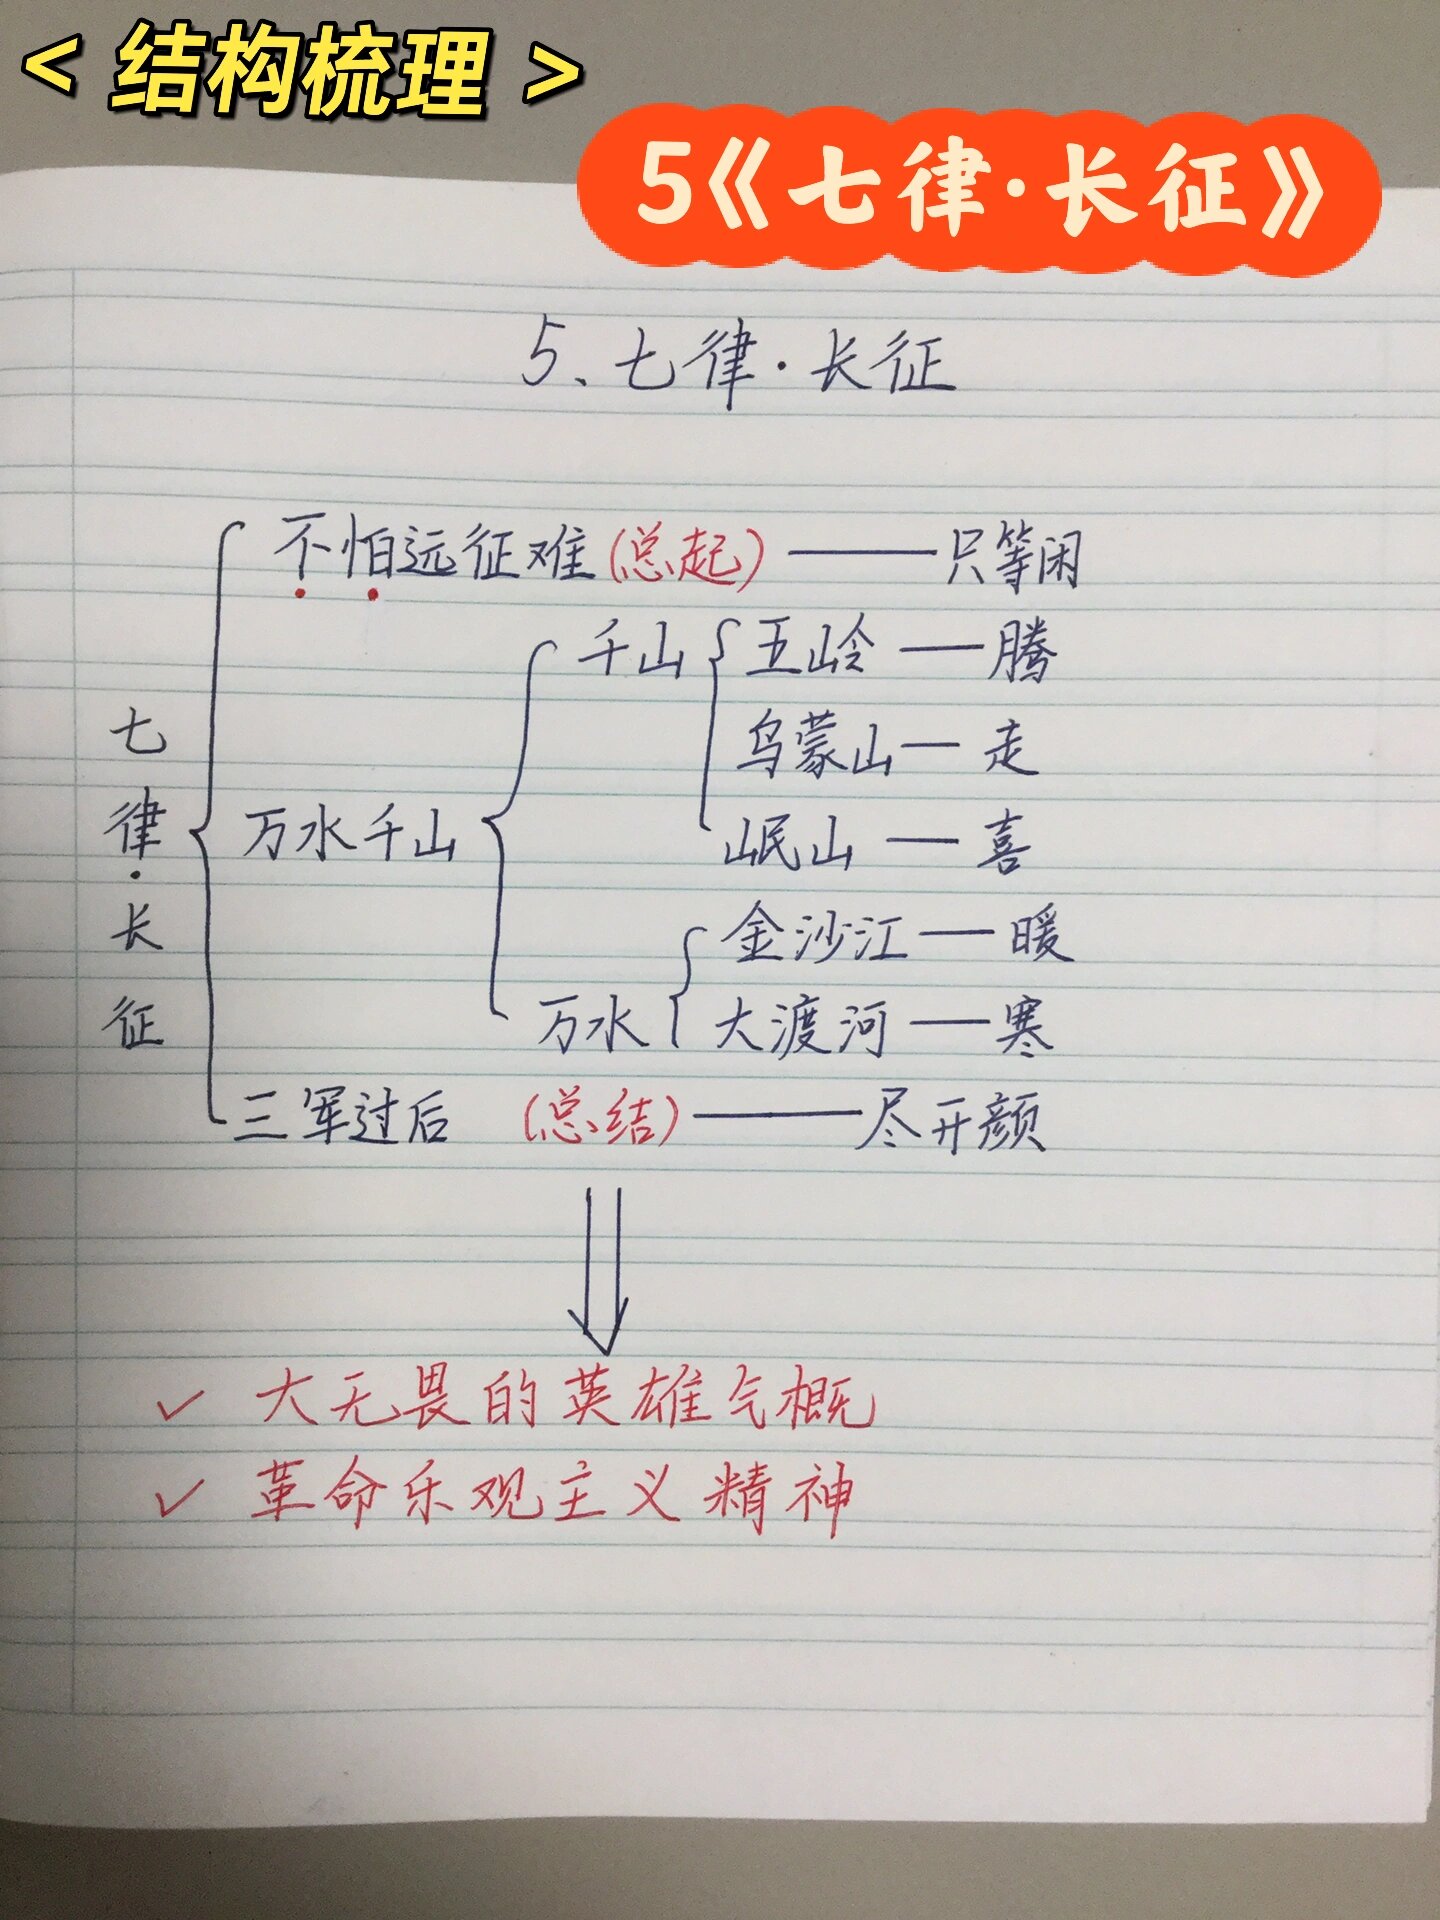 < 结构梳理 >
5《七律·长征》
5、七律·长征
七律·长征
不怕远征难(总起)——只等闲
万水千山
千山
五岭——腾
乌蒙山—走
岷山—喜
万水
金沙江—暖
大渡河—寒
三军过后 (总结)——尽开颜
✓ 大无畏的英雄气概
✓ 革命乐观主义精神